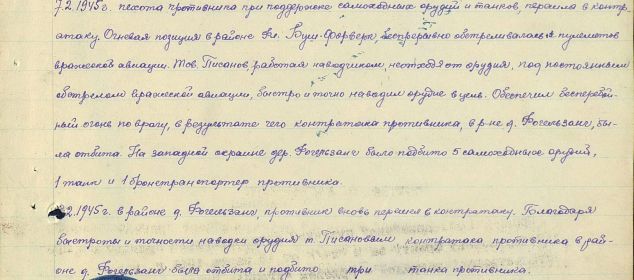 7.2.1945г. пехота противника при поддержке самоходных орудий и танков, перешла в контр-
атаку. Огневая позиция в районе Кл. Буш-Форверк, беспрерывно обстреливалась пулеметов
вражеской авиации. Тов. Писанов, работая наводчиком, не отходя от орудия, под постоянным
обстрелом вражеской авиации, быстро и точно наводил орудие в цель. Обеспечил бесперебой-
ный огонь по врагу, в результате чего контратака противника, в р-не д. Фогельзанг, бы-
ла отбита. На западной окраине дер. Фогельзанг было подбито 5 самоходных орудий,
1 танк и 1 бронетранспортер противника.
2.1945г. в районе д. Фогельзанг, противник вновь перешел в контратаку. Благодаря
быстроты и точности наводки орудия т. Писановым контратака противника в рай-
оне д. Фогельзанг была отбита и подбито три танка противника.